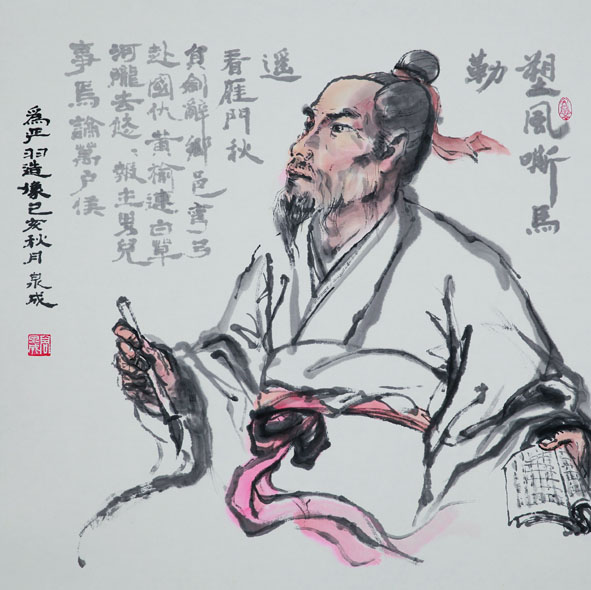 塑風嘶馬
勒
遥
看雁門秋
負劍辭鄉邑弯弓
赴國仇黄榆連白草
河隴去悠〻報主男兒
事焉論萬户侯
爲严羽造像己亥秋月泉成